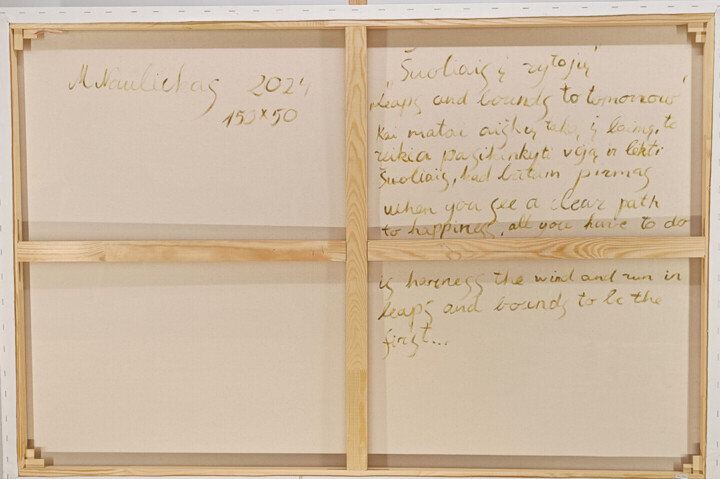 M Naulickas 2024
150×50
„Šuoliais į rytojų"
„Leaps and bounds to tomorrow"
Kai matai aiškų taką į laimę, te
reikia pasikinkyti vėją ir lėkti
šuoliais, kad būtum pirmas
when you see a clear path
to happiness, all you have to do
is harness the wind and run in
leaps and bounds to be the
first...